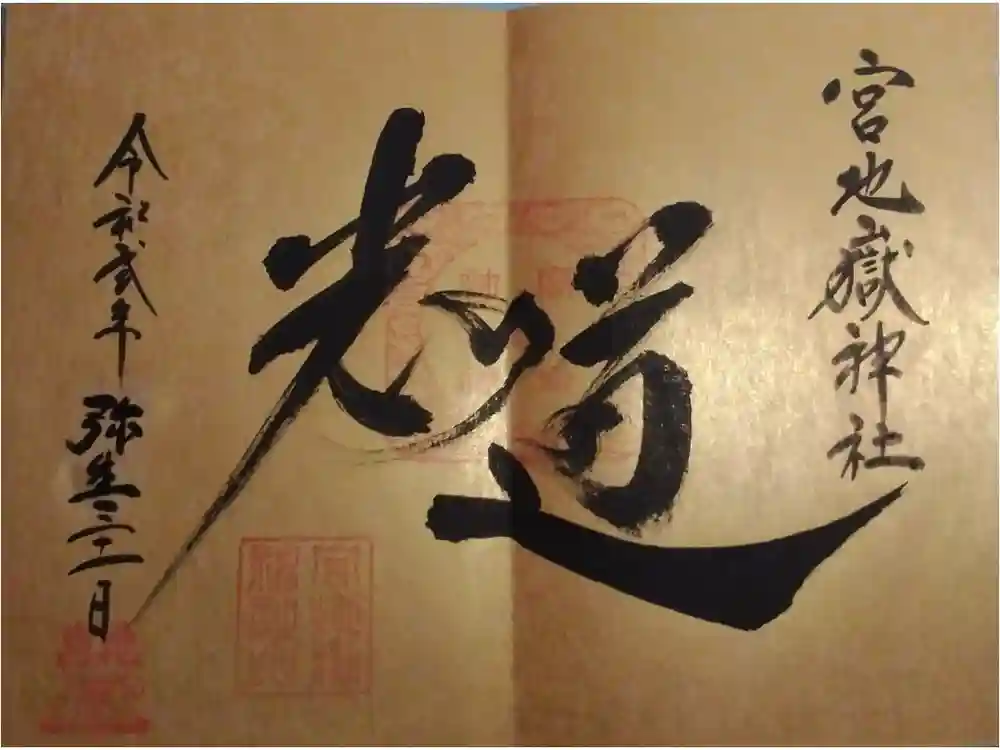 宮地嶽神社
光の道
令和弐年弥生二十一日